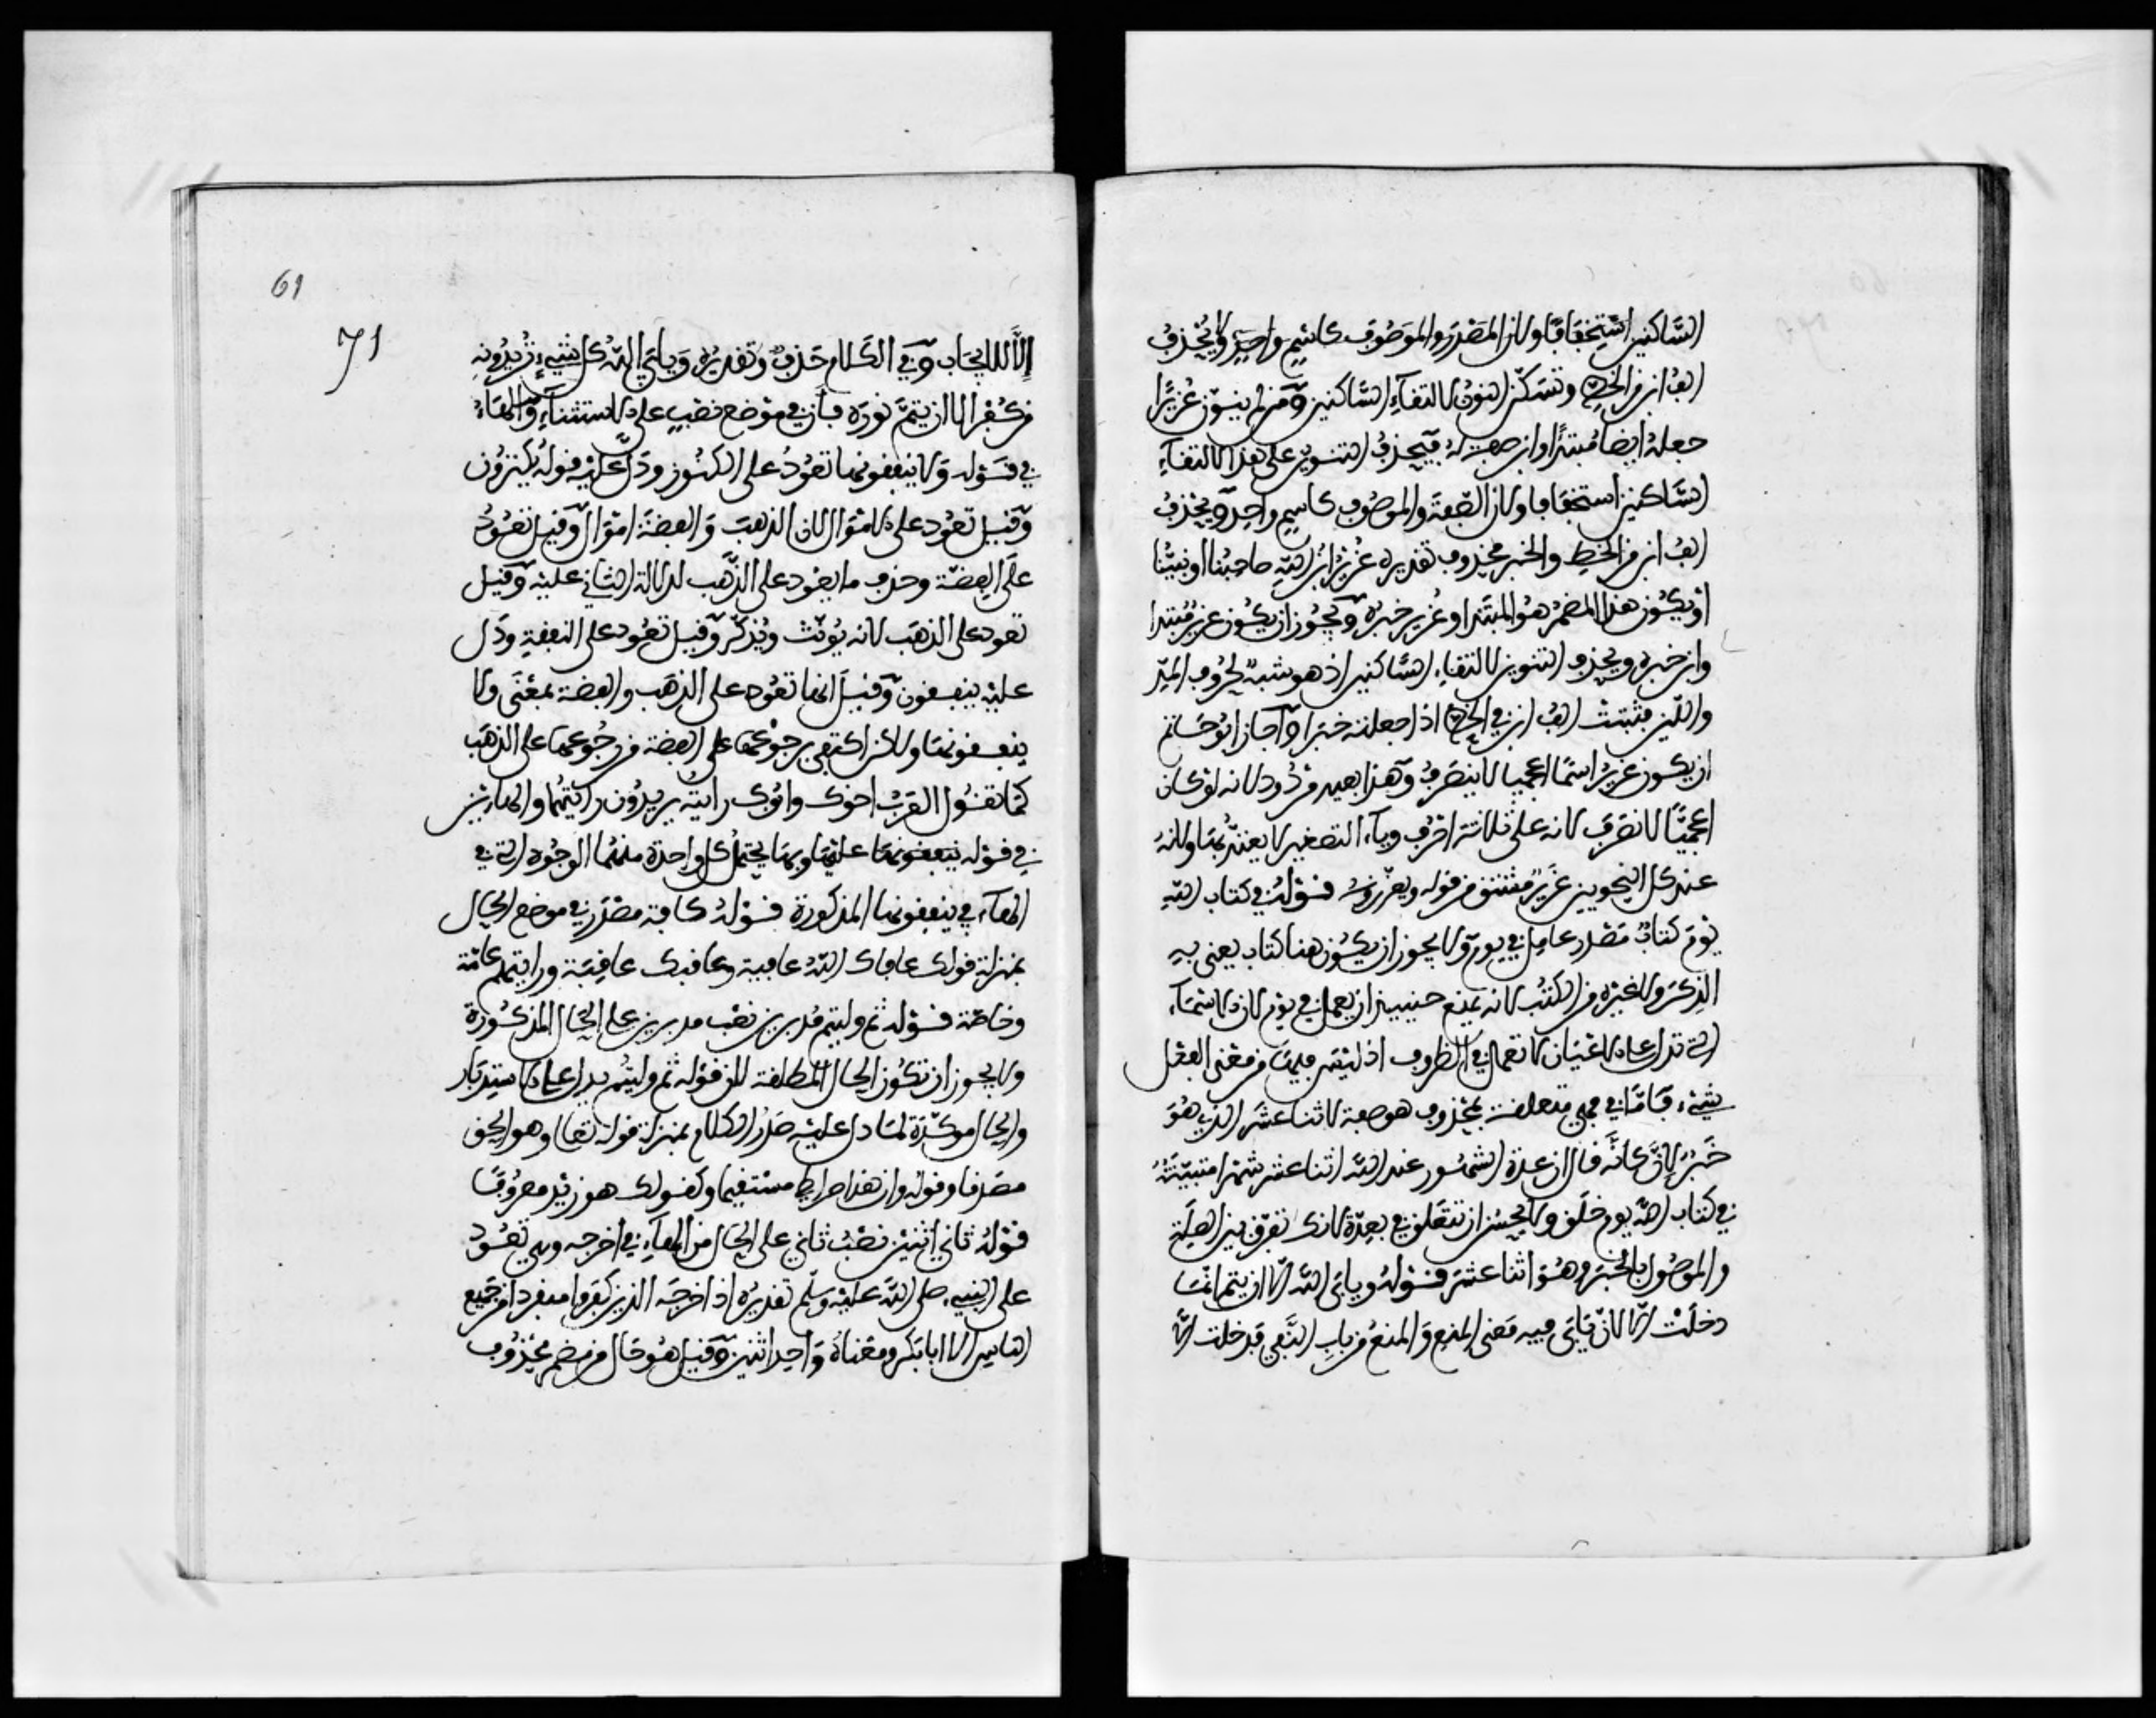 الساكنين استخفافا ولان المصدر والموصوف كاسم واحد ولا يحذف
الف ابن من الخط وتسكن النون لالتقاء الساكنين ومن لم ينون عزيرا
جعله ايضا مبتدا وابن صفة له فيحذف التنوين على هذا لالتقاء
الساكنين استخفافا ولان الصفة والموصوف كاسم واحد ويحذف
الف ابن من الخط والخبر محذوف تقديره عزير ابن الله صاحبنا او نبينا
او يكون هذا المضمر هو المبتدا وعزير خبره ويجوز ان يكون عزير مبتدا
وابن خبره ويحذف التنوين لالتقاء الساكنين اذ هو مشبه بحروف المد
واللين فتثبت الف ابن في الخط اذا جعلته خبرا واجاز ابو حاتم
ان يكون عزير اسما اعجميا لا ينصرف وهذا بعيد مردود لانه لو كان
اعجميا لانصرف لانه على ثلاثة احرف وياء التصغير لا يعتد بها ولانه
عند كل النحويين عزير مشتق من قوله ويعزروه قوله في كتاب الله
يوم كتاب مصدر عامل في يوم ولا يجوز ان يكون هنا كتاب يعنى به
الذكر ولا غيره من الكتب لانه يمنع حينيذ ان يعمل في يوم لان الاسماء
التي تدل على الاعيان لا تعمل في الظروف اذ ليس فيها من معنى الفعل
شيء فاما في فهي متعلقة بمحذوف هو صفة لاثنا عشر الذي هو
خبر لان كانه قال ان عدة الشهور عند الله اثنا عشر شهرا مثبتة
في كتاب الله يوم خلق ولا يحسن ان تتعلق في بعدة لانك تفرق بين الصلة
والموصول بالخبر وهو اثنا عشر قوله ويابى الله الا ان يتم انما
دخلت الا لان يابى فيه معنى المنع والمنع من باب النفي فدخلت الا
61
71
الا للايجاب وفي الكلام حذف وتقديره ويابى الله كل شيء تريدونه
من كفر الا ان يتم نوره فان في موضع نصب على الاستثناء والهاء
في قوله ولا ينفقونها تعود على الكنوز ودل عليه قوله يكنزون
وقيل تعود على الاموال لان الذهب والفضة اموال وقيل تعود
على الفضة وحذف ما يعود على الذهب لدلالة الثاني عليه وقيل
تعود على الذهب لانه يونث ويذكر وقيل تعود على النفقة ودل
عليه ينفقون وقيل انها تعود على الذهب والفضة بمعنى ولا
ينفقونهما ولاكن اكتفى برجوعها على الفضة من رجوعها على الذهب
كما تقول العرب اخوك وابوك رايته يريدون رايتهما والهاءين
في قوله ينفقونها عليها وبها يحتمل كل واحدة منهما الوجوه التي في
الهاء في ينفقونها المذكورة قوله كافة مصدر في موضع الحال
بمنزلة قولك عافاك الله عافية وعاقبك عاقبة ورايتهم عامة
وخاصة قوله ثم وليتم مدبرين نصب مدبرين على الحال المذكورة
ولا يجوز ان تكون الحال المطلقة لان قوله ثم وليتم يدل على الاستدبار
والحال موكدة لما دل عليه صدر الكلام بمنزلة قوله تعالى وهو الحق
مصدقا وقوله وان هذا صراطي مستقيما وكقولك هو زيد معروفا
قوله ثاني اثنين نصب ثاني على الحال من الهاء في اخرجه وهي تعود
على النبيء صلى الله عليه وسلم تقديره اذ اخرجه الذين كفروا منفردا من جميع
الناس الا ابا بكر ومعناه واحد اثنين وقيل هو حال من مضمر محذوف